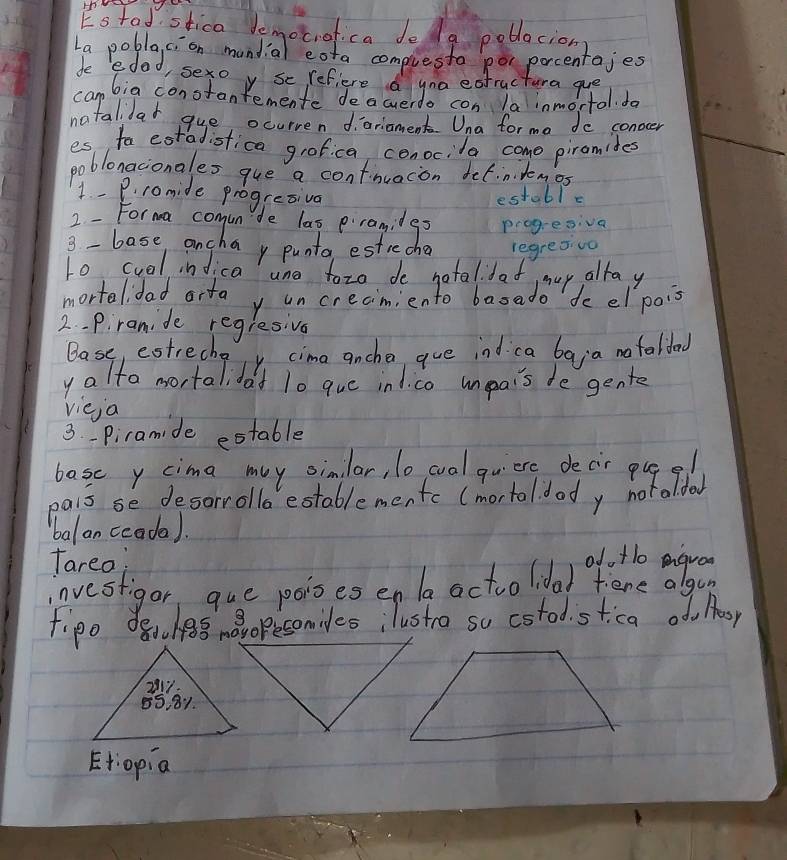 Estadistica democratica de la poblacion
La poblacion mundial esta compuesta por porcentajes
de edad, sexo y se refiere a una estructura que
cambia constantemente de acuerdo con la inmortalida
natalidat que ocurren diariamente. Una forma de conocer
es, ta estadistica grafica conocida como piramides
poblonacionales que a continuacon definidemos
1.- Piromide progresiva
estable
2.- Forma comun de las piramides
progresiva
3.- base ancha y punta estrecha
regresivo
Lo cual indica una taza de natalidad, muy alta y
mortalidad arta y un crecimiento basado de el pais
2.- Piramide regresiva
Base, estrecha y cima ancha que indica baja natalidad
y alta mortalidad lo que indico un pais de gente
vieja
3.- Piramide estable
base y cima muy similar, lo cual quiere decir que el
pais se desarrolla establemente (mortalidad y notalidad
balanceada).
Tarea:
investigar que pais es en la actualidad tiene algun
tipo de ilustra su estadistica
29%
55,8%
Etiopía